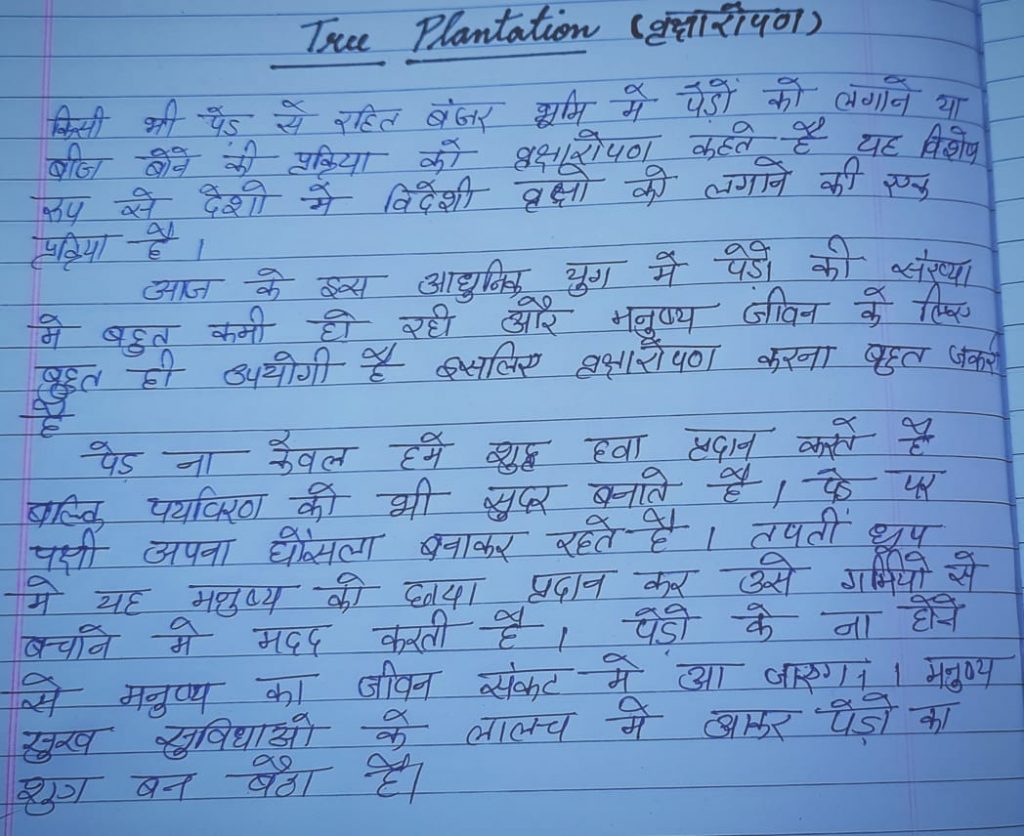 Tree Plantation (वृक्षारोपण)
किसी भी पेड़ से रहित बंजर भूमि मे पेड़ों को लगाने या
बीज बोने की प्रक्रिया को वृक्षारोपण कहते है यह विशेष
रूप से देशो में विदेशी वृक्षो को लगाने की एक
प्रक्रिया है ।
आज के इस आधुनिक युग मे पेड़ो की संख्या
मे बहुत कमी हो रही और मनुष्य जीवन के लिए
बहुत ही उपयोगी है इसलिए वृक्षारोपण करना बहुत जरूरी
है
पेड़ ना केवल हमे शुद्ध हवा प्रदान करते है
बल्कि पर्यावरण को भी सुदर बनाते है । पेड़ पर
पक्षी अपना घोंसला बनाकर रहते है । तपती धूप
मे यह मनुष्य को छाया प्रदान कर उसे गर्मियो से
बचाने मे मदद करती है । पेड़ो के ना होने
से मनुष्य का जीवन संकट मे आ जाएगा । मनुष्य
सुख सुविधाओ के लालच मे आकर पेड़ो का
बन बैठा है।